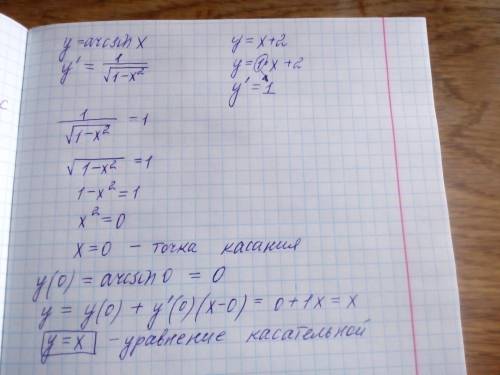 y = arcsin x
y' = 1/√(1-x²)
y = x+2
y = 1·x + 2
y' = 1
1/√(1-x²) = 1
√(1-x²) = 1
1-x² = 1
x² = 0
x=0 - точка касания
y(0) = arcsin 0 = 0
y = y(0) + y'(0)(x-0) = 0+1x = x
y = x - уравнение касательной